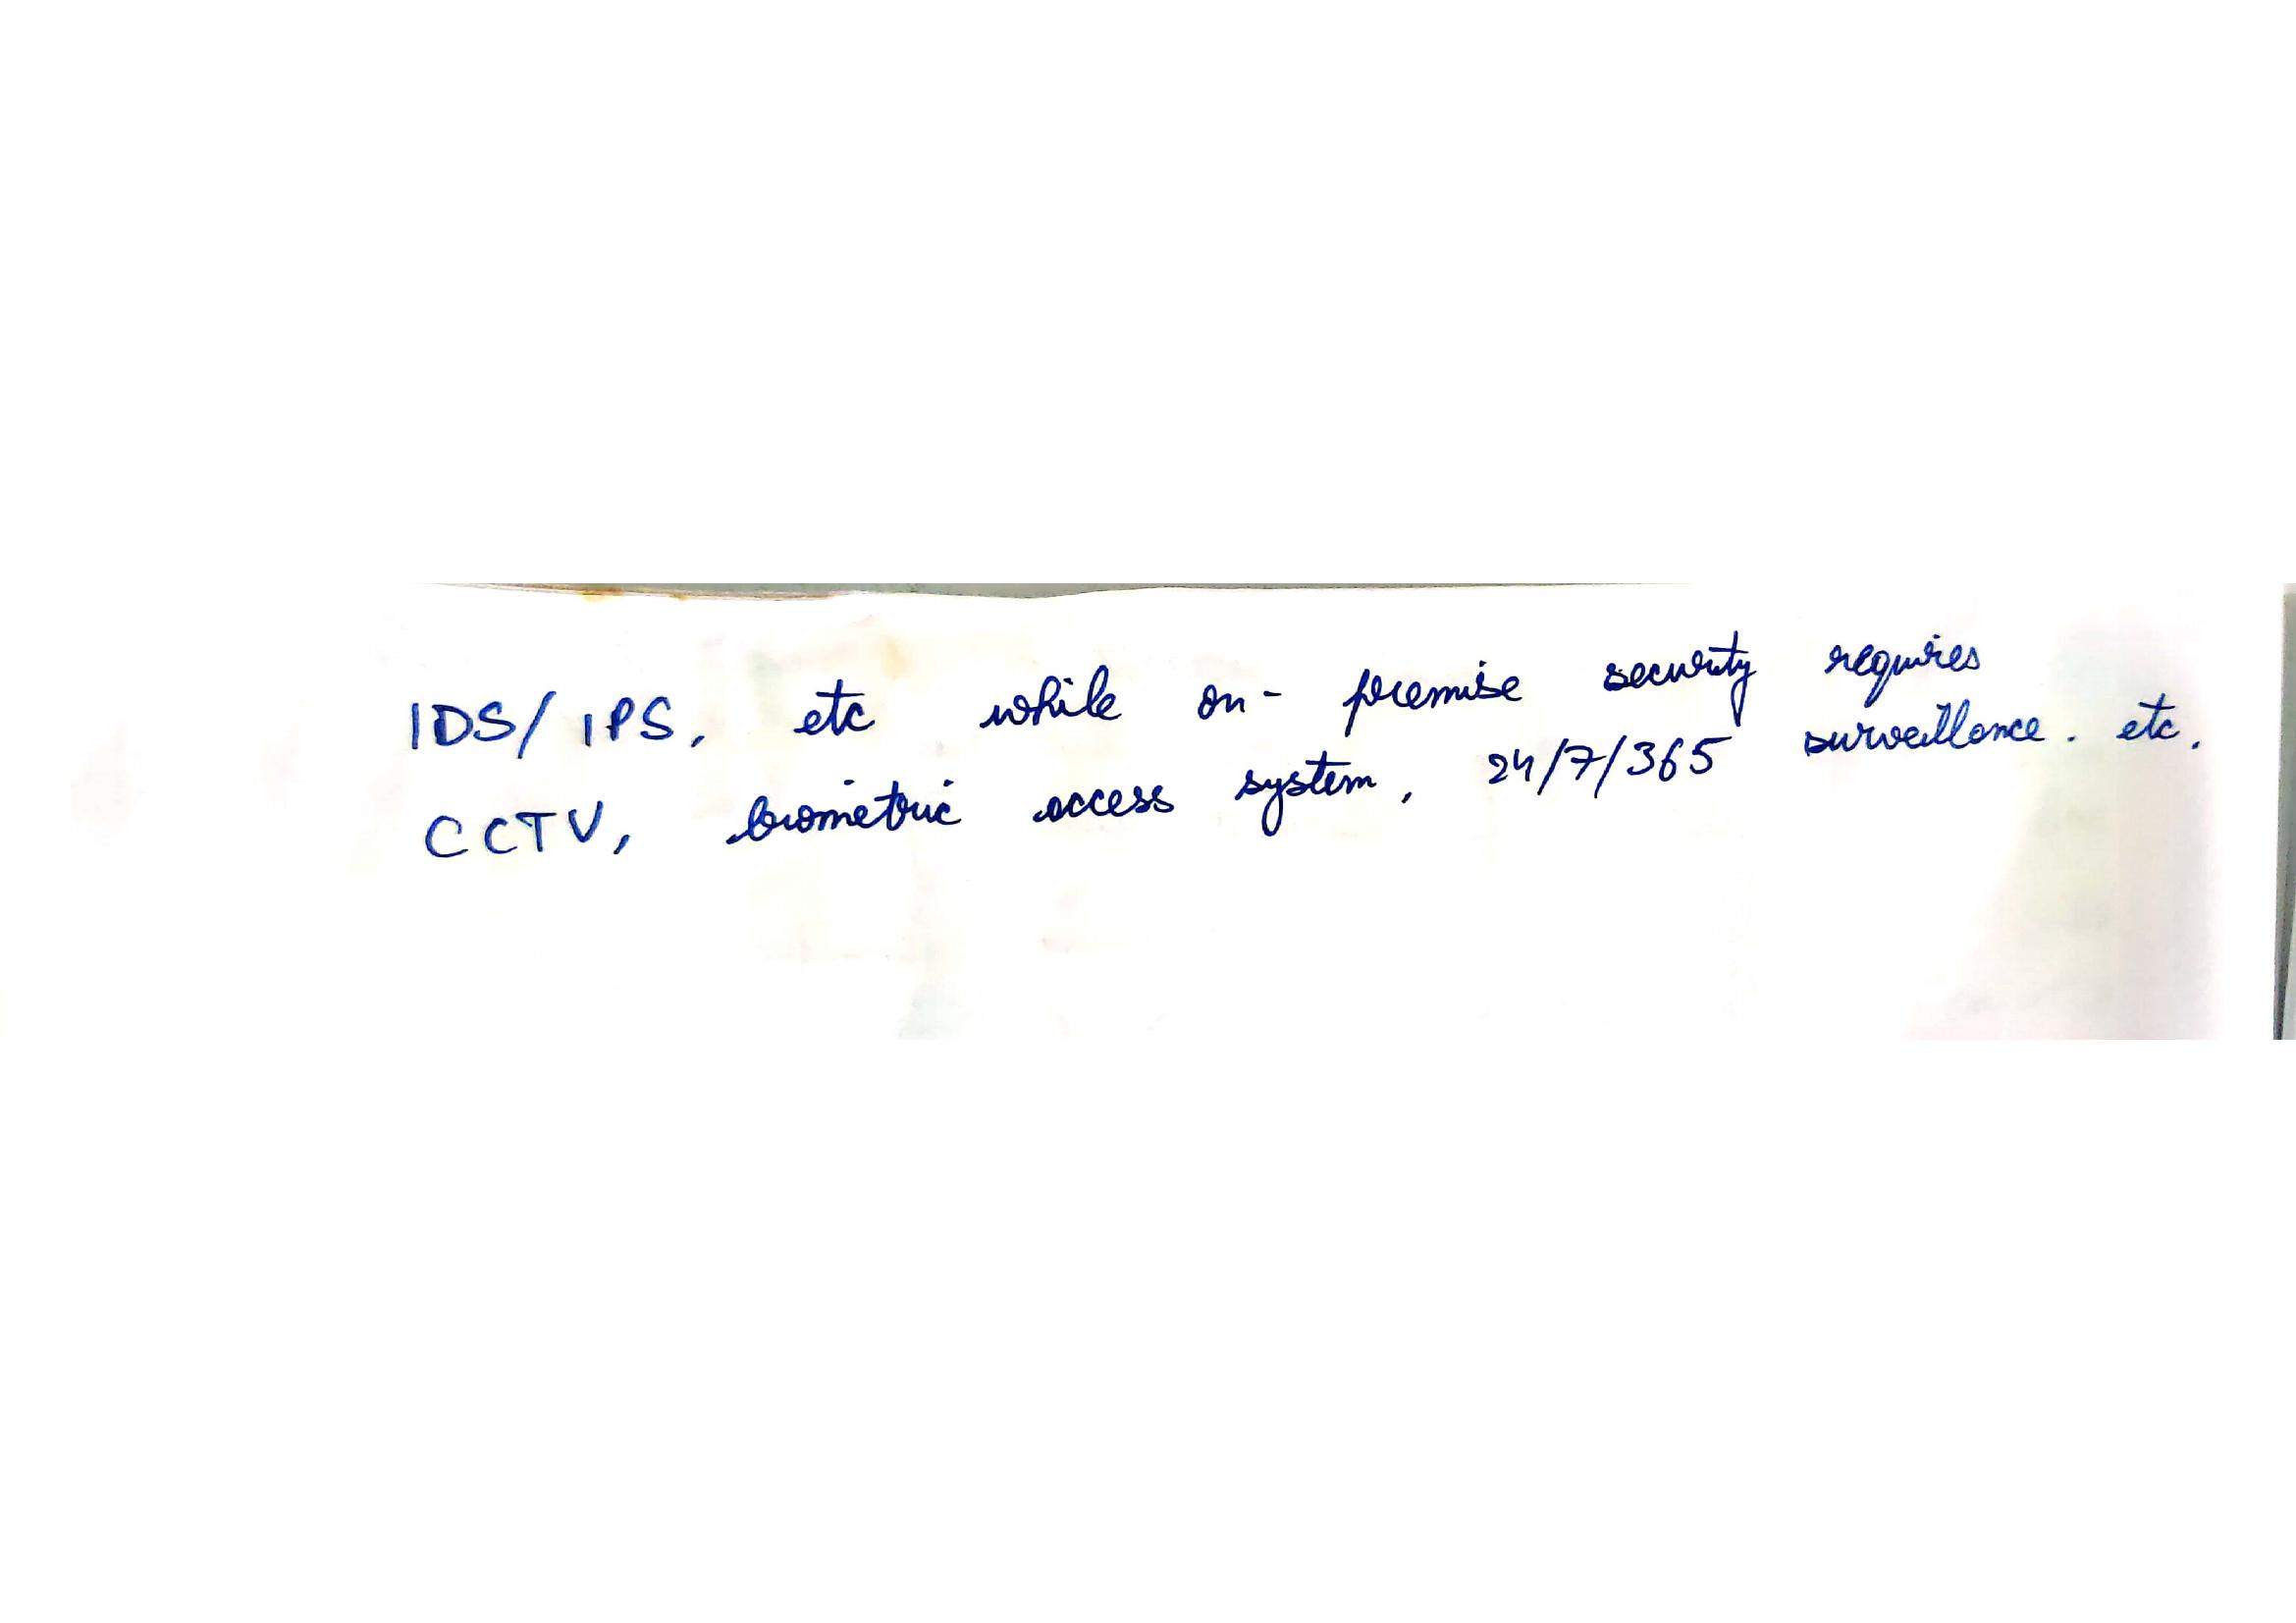 IDS/ IPS, etc while on- premise security requires
CCTV, biometric access system, 24/7/365 surveillance. etc.